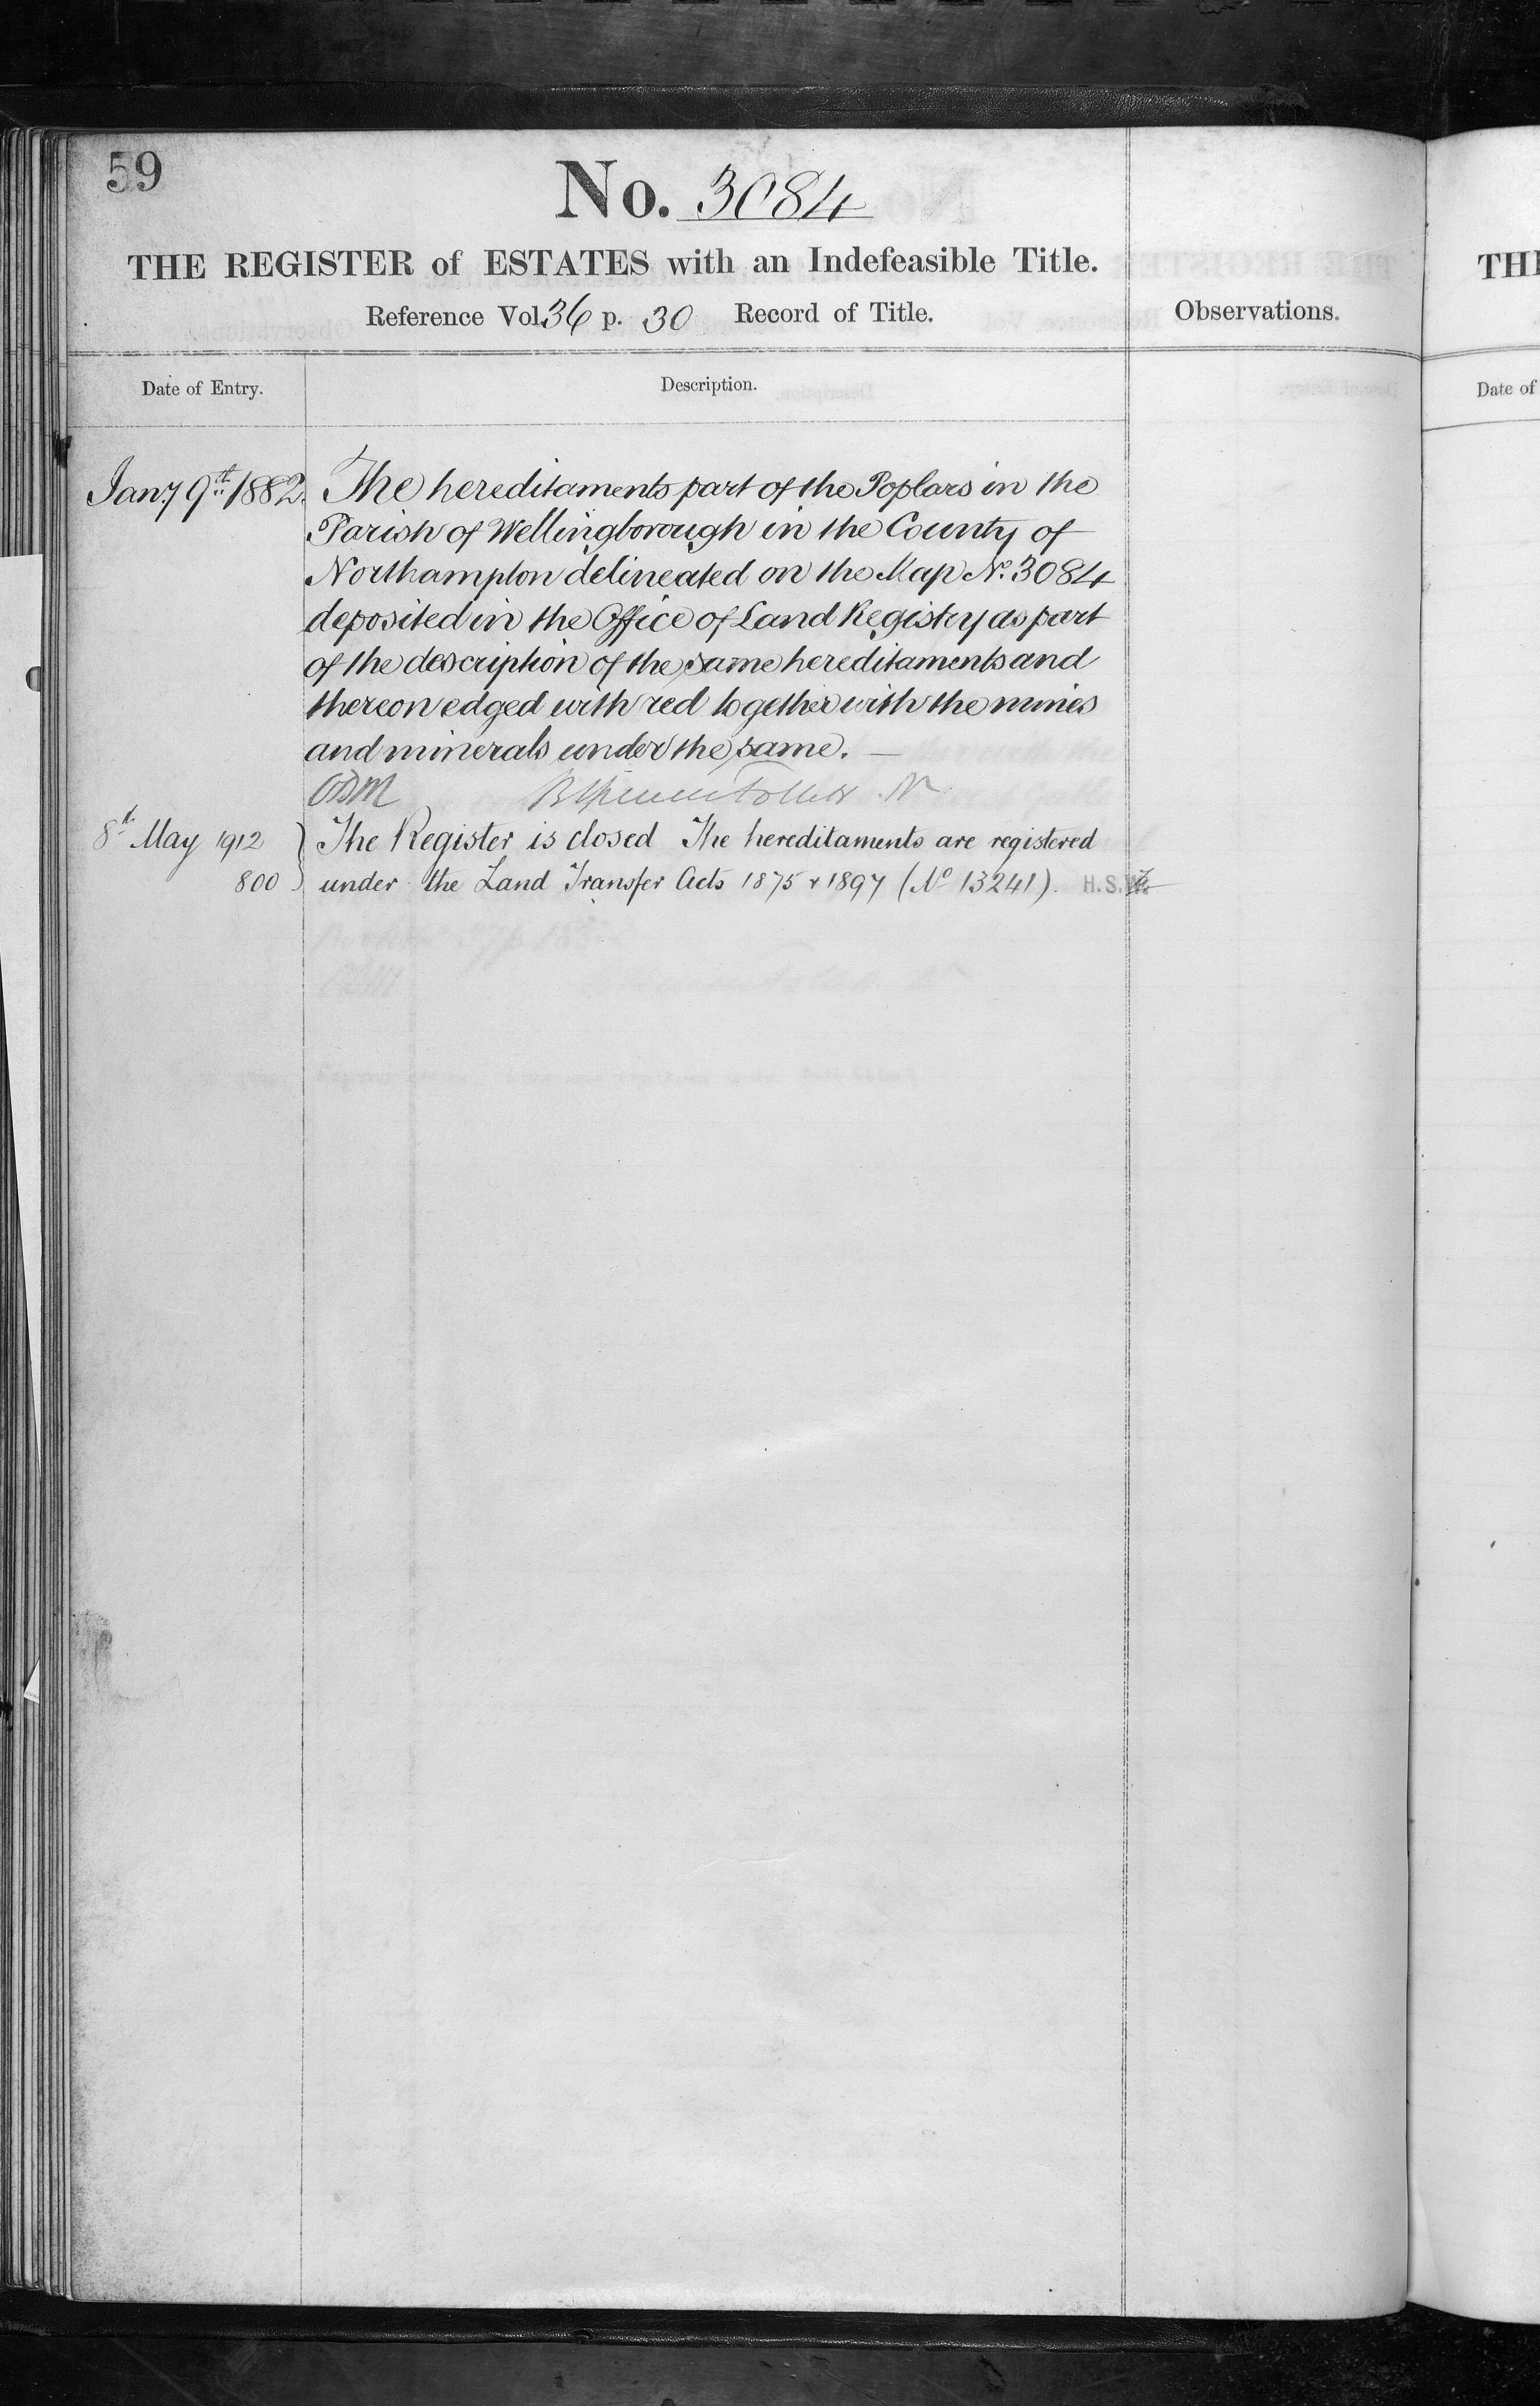 59
No. 3084
THE REGISTER of ESTATES with an Indefeasible Title.
Reference Vol. 36 p. 30 Record of Title.
Observations.
Date of Entry.
Description.
Jany 9th 1882.
The hereditaments part of the Poplars in the
Parish of Wellingborough in the County of
Northampton delineated on the Map No. 3084
deposited in the Office of Land Registry as part
of the description of the same hereditaments and
thereon edged with red together with the mines
and minerals under the same. —
8th May 1912
The Register is closed The hereditaments are registered
800
under the Land Transfer Acts 1875 & 1897 (No 13241). H.S.
TH
Date of